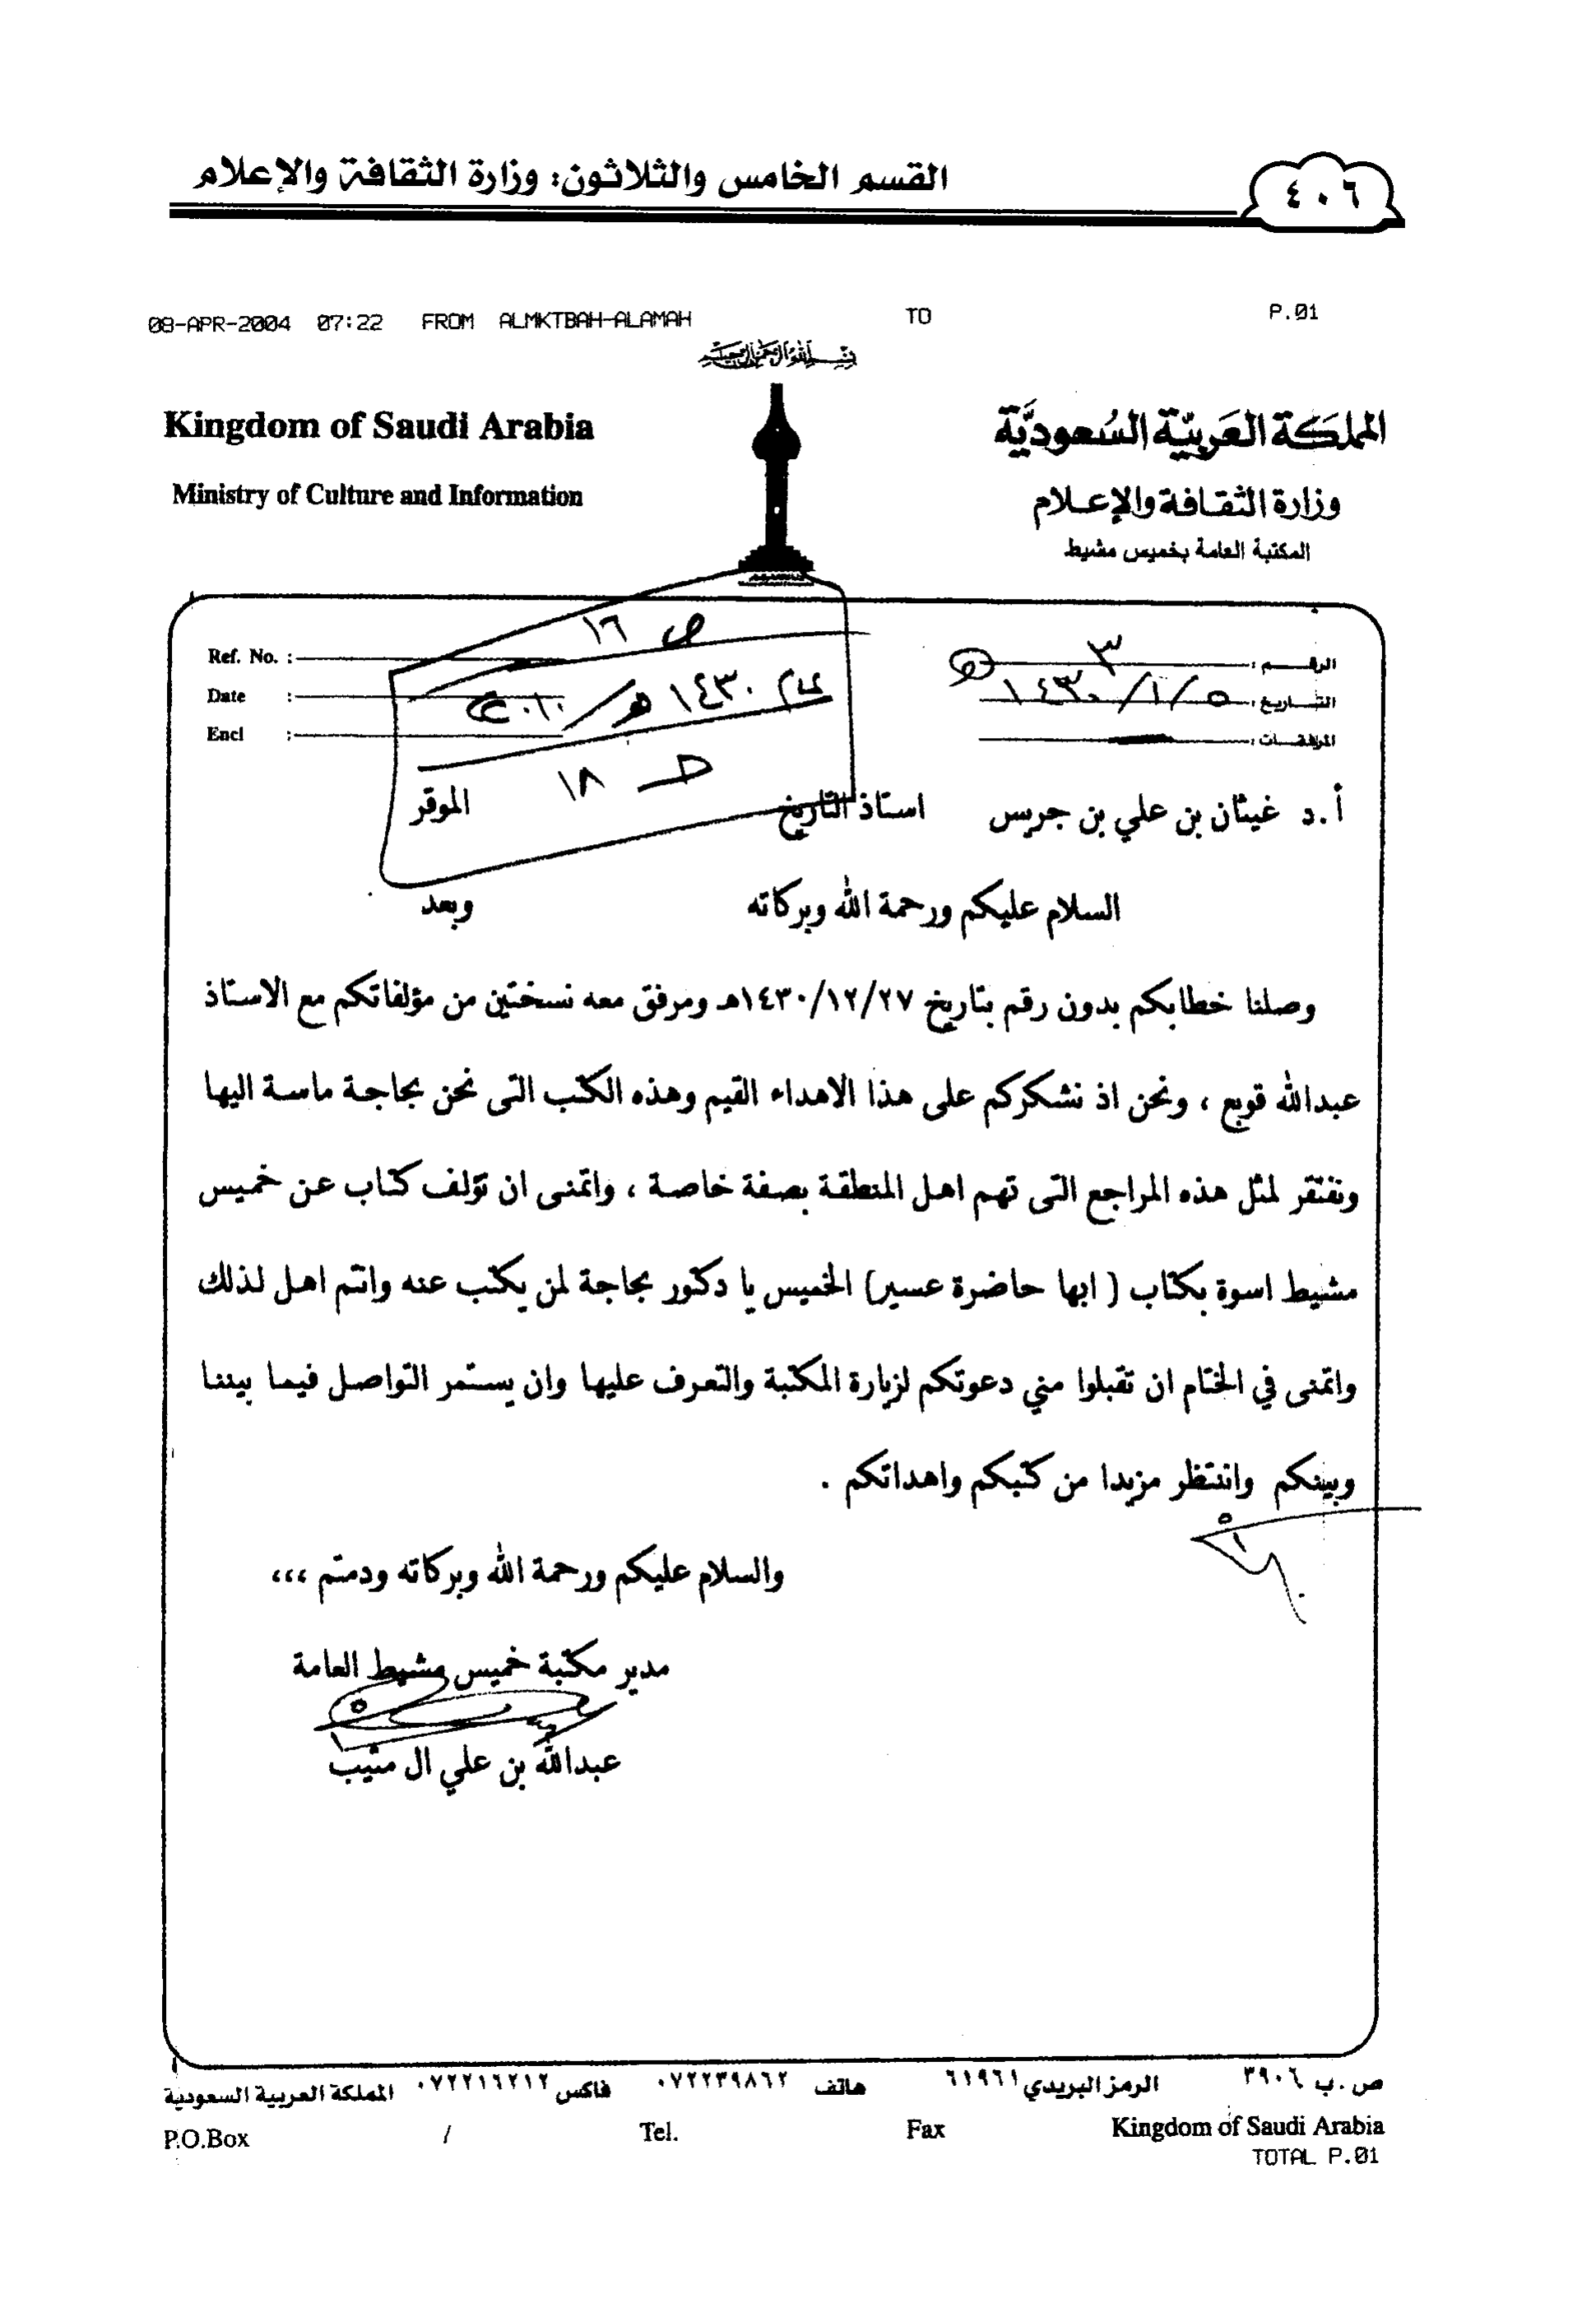 القسم الخامس والثلاثون: وزارة الثقافة والإعلام
٤٠٦
08-APR-2004 07:22 FROM ALMKTBAH-ALAMAH TO P.01
بسم الله الرحمن الرحيم
Kingdom of Saudi Arabia
المملكة العربية السعودية
Ministry of Culture and Information
وزارة الثقافة والإعلام
المكتبة العامة بخميس مشيط
Ref. No. :
Date :
Encl :
ص ١٦
١٤٣٠هـ / ٢٠١٠
ح ١٨
الرقم : ٣
التاريخ : ١٤٣٠/١/٥
المرفقات :
أ.د غيثان بن علي بن جريس استاذ التاريخ الموقر
السلام عليكم ورحمة الله وبركاته وبعد
وصلنا خطابكم بدون رقم بتاريخ ١٤٣٠/١٢/٢٧هـ ومرفق معه نسختين من مؤلفاتكم مع الاستاذ
عبدالله قويع ، ونحن اذ نشكركم على هذا الاهداء القيم وهذه الكتب التى نحن بحاجة ماسة اليها
ونفتقر لمثل هذه المراجع التى تهم اهل المنطقة بصفة خاصة ، واتمنى ان تؤلف كتاب عن خميس
مشيط اسوة بكتاب ( ابها حاضرة عسير) الخميس يا دكتور بحاجة لمن يكتب عنه وانتم اهل لذلك
واتمنى في الختام ان تقبلوا مني دعوتكم لزيارة المكتبة والتعرف عليها وان يستمر التواصل فيما بيننا
وبينكم وانتظر مزيدا من كتبكم واهداتكم .
والسلام عليكم ورحمة الله وبركاته ودمتم ،،،
مدير مكتبة خميس مشيط العامة
عبدالله بن علي ال مثيب
ص.ب ٣٩٠٦ الرمز البريدي ٦١٩٦١ هاتف ٠٧٢٢٣٩٨٦٢ فاكس ٠٧٢٢١٦٢١٢ المملكة العربية السعودية
P.O.Box / Tel. Fax Kingdom of Saudi Arabia
TOTAL P.01